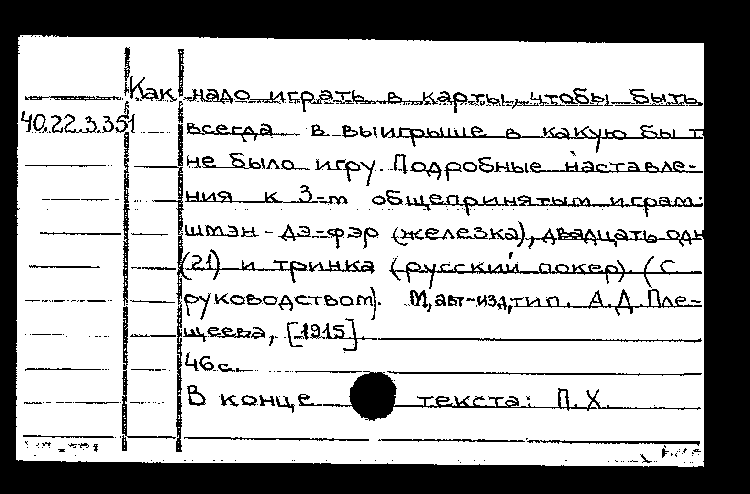 Как надо играть в карты, чтобы быть
40.22.3.351 всегда в выигрыше в какую бы т
не было игру. Подробные наставле-
ния к 3-м общепринятым играм:
шмэн-дэ-фэр (железка), двадцать одн
(21) и тринка (русский покер). (С
руководством). М, авт-изд, тип. А.Д. Пле-
щеева, [1915].
46с.
В конце текста: П.Х.